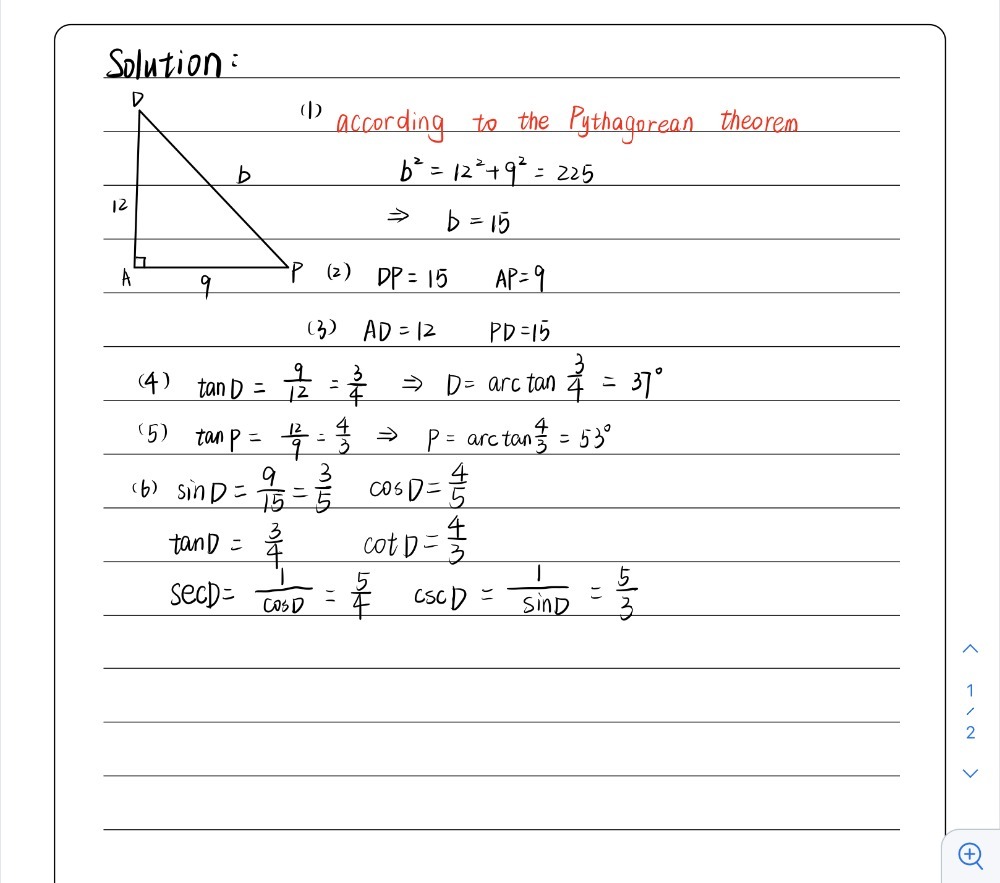 Solution:
D
b
12
A
9
P
(1) according to the Pythagorean theorem
b² = 12² + 9² = 225
⇒ b = 15
(2) DP = 15 AP = 9
(3) AD = 12 PD = 15
(4) tan D = 9/12 = 3/4 ⇒ D = arc tan 3/4 = 37°
(5) tan P = 12/9 = 4/3 ⇒ P = arc tan 4/3 = 53°
(6) sin D = 9/15 = 3/5 cos D = 4/5
tan D = 3/4 cot D = 4/3
sec D = 1/cos D = 5/4 csc D = 1/sin D = 5/3
1
/
2